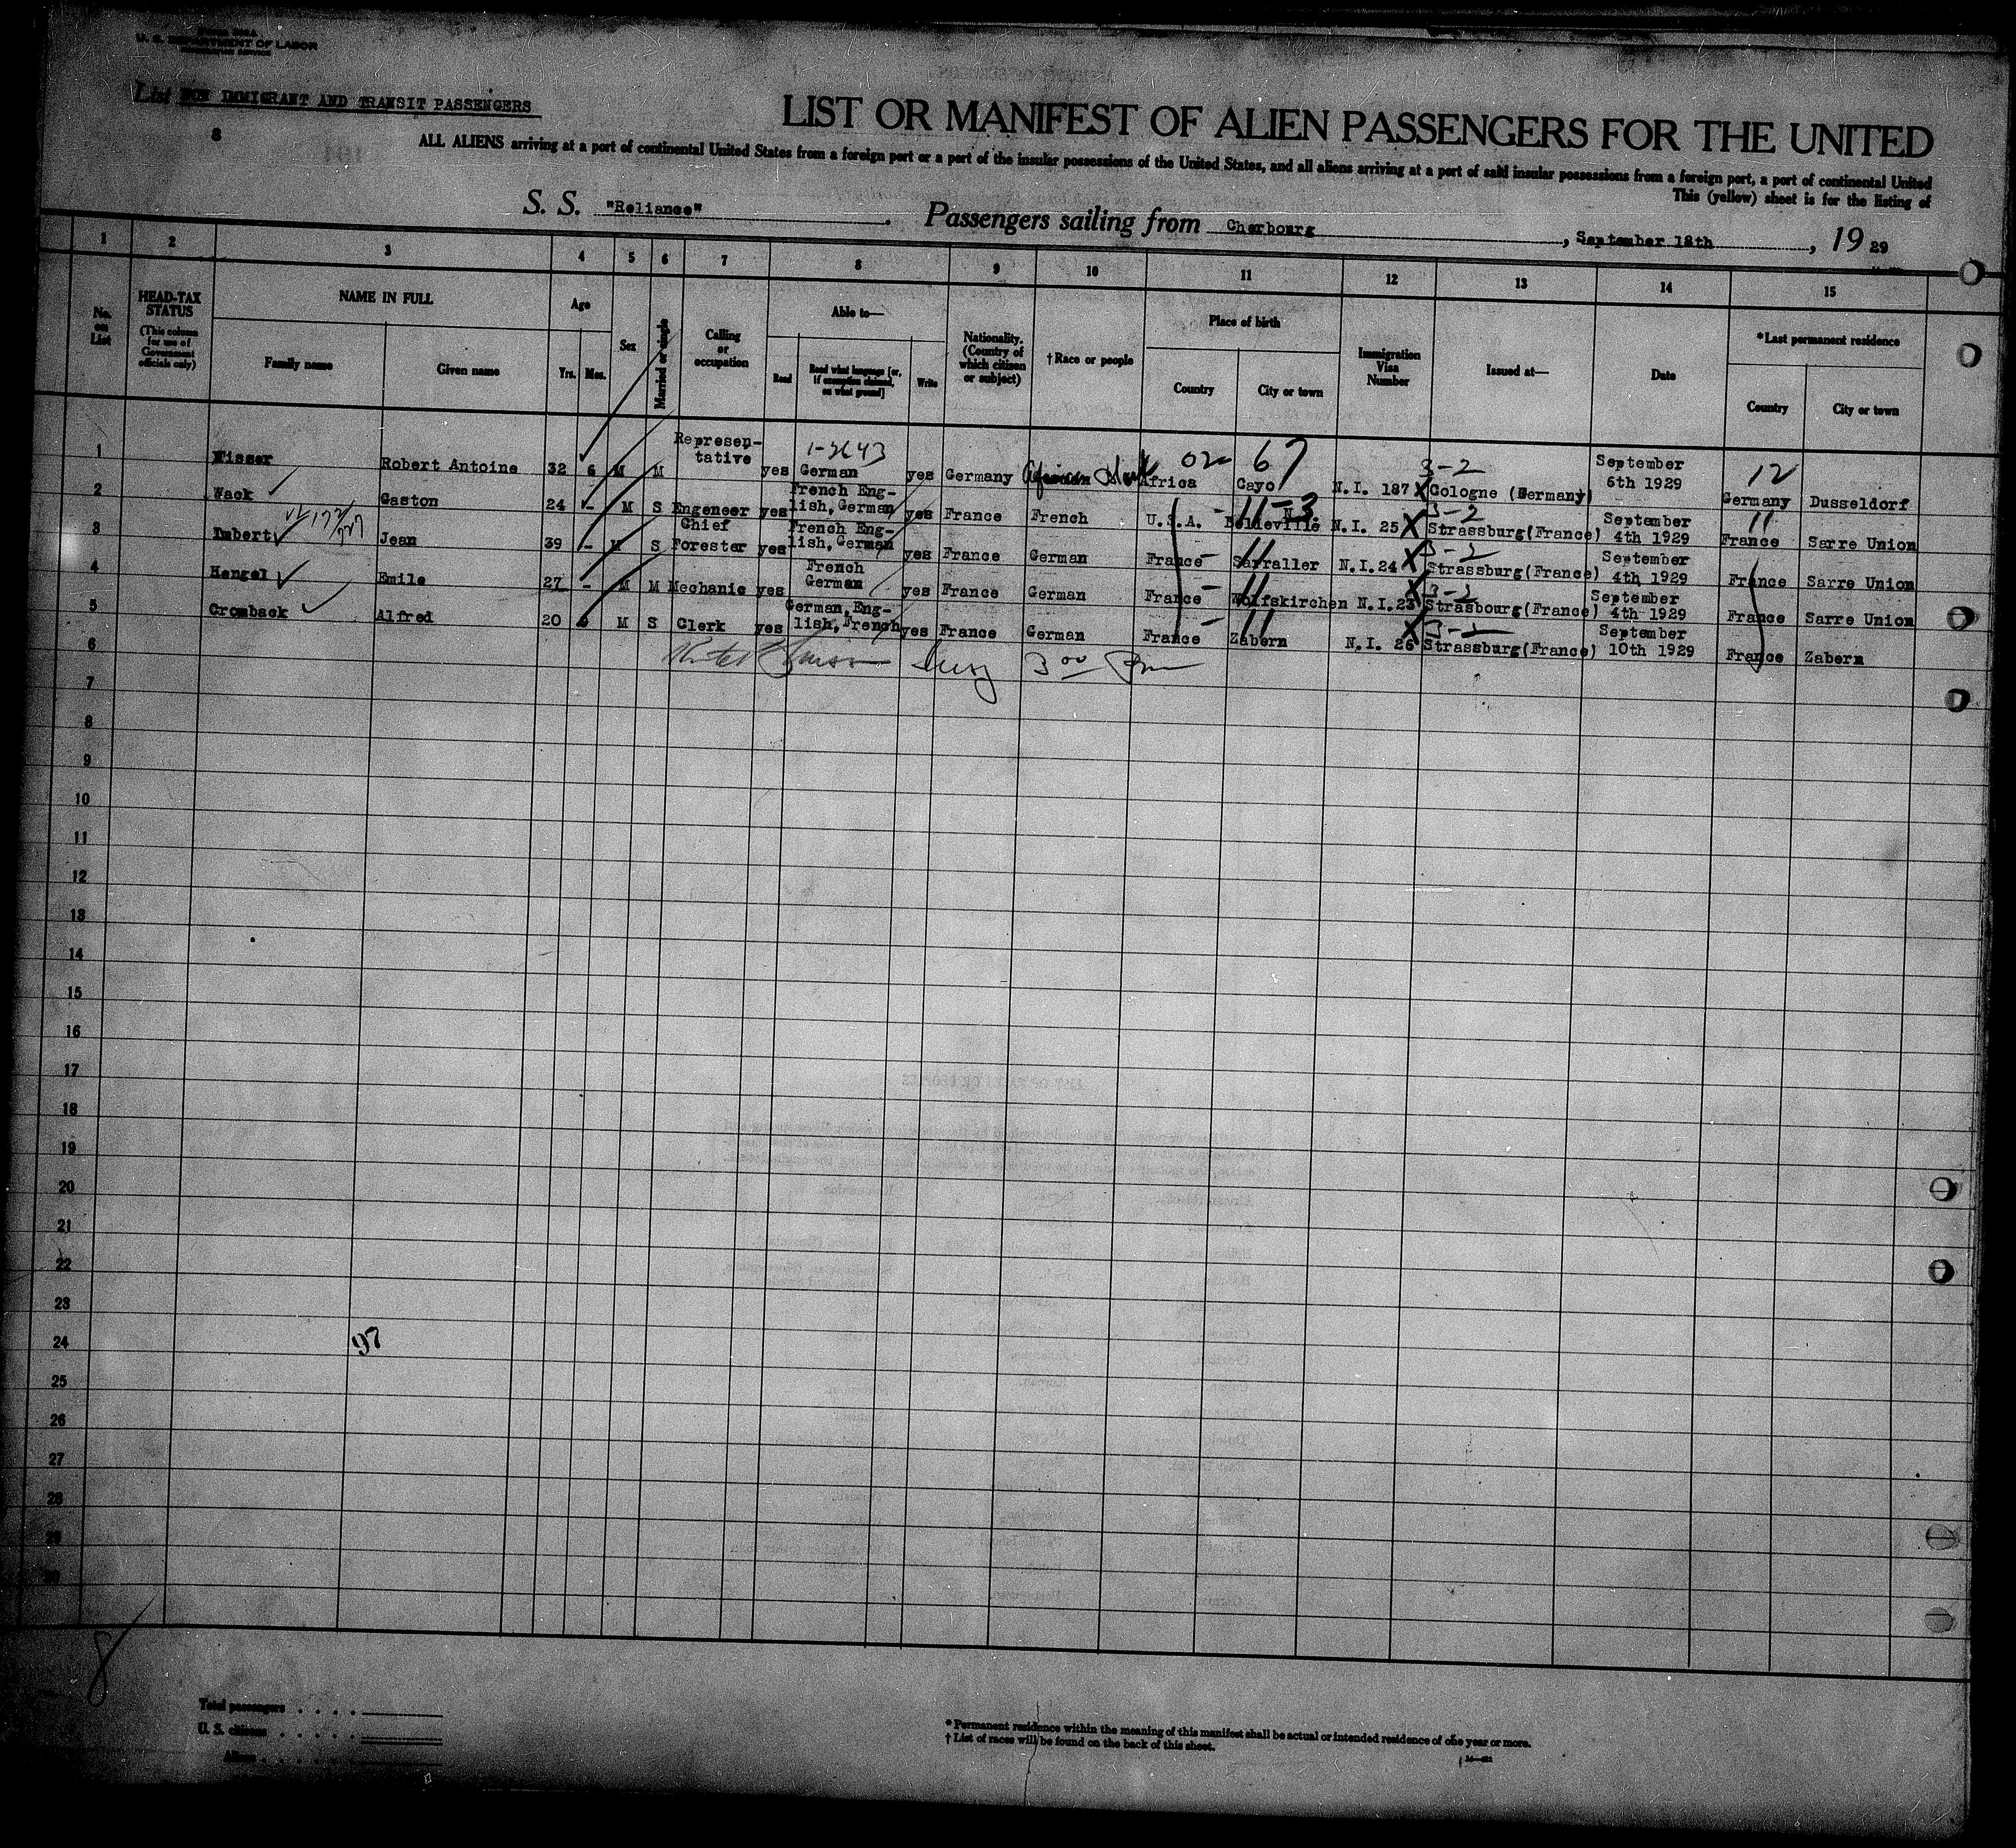 U. S. DEPARTMENT OF LABOR
List NON IMMIGRANT AND TRANSIT PASSENGERS
8
LIST OR MANIFEST OF ALIEN PASSENGERS FOR THE UNITED
ALL ALIENS arriving at a port of continental United States from a foreign port or a port of the insular possessions of the United States, and all aliens arriving at a port of said insular possessions from a foreign port, a port of continental United
This (yellow) sheet is for the listing of
S. S. "Reliance" Passengers sailing from Cherbourg, September 18th, 1929
1 2 3 4 5 6 7 8 9 10 11 12 13 14 15
No. on List
HEAD-TAX STATUS (This column for use of Government officials only)
NAME IN FULL
Family name Given name
Age
Yrs. Mos.
Sex
Married or single
Calling or occupation
Able to—
Read Read what language [or, if exemption claimed, on what ground] Write
Nationality. (Country of which citizen or subject)
†Race or people
Place of birth
Country City or town
Immigration Visa Number
Issued at—
Date
*Last permanent residence
Country City or town
1 Robert Antoine 32 6 M M Represen-tative yes 1-2643 German yes Germany Africa 02 67 Cayo N.I. 187 X 3-2 Cologne (Germany) September 6th 1929 12 Germany Dusseldorf
2 Wack Gaston 24 - M S Engeneer yes French Eng-lish, German yes France French U.S.A. 11-3 Belleville N.I. 25 X 3-2 Strassburg(France) September 4th 1929 11 France Sarre Union
3 Imbert Jean 39 - M S Chief Forester yes French Eng-lish, German yes France German France 11 Sarraller N.I.24 X 3-2 Strassburg(France) September 4th 1929 France Sarre Union
4 Hengel Emile 27 - M M Mechanic yes French German yes France German France 11 Wolfskirchen N.I.23 X 3-2 Strasbourg(France) September 4th 1929 France Sarre Union
5 Cromback Alfred 20 6 M S Clerk yes German, Eng-lish, French yes France German France 11 Zabern N.I. 26 X 3-2 Strassburg(France) September 10th 1929 France Zabern
6 3 00
7
8
9
10
11
12
13
14
15
16
17
18
19
20
21
22
23
24 97
25
26
27
28
29
30
8
Total passengers
U. S. citizens
Aliens
* Permanent residence within the meaning of this manifest shall be actual or intended residence of one year or more.
† List of races will be found on the back of this sheet.